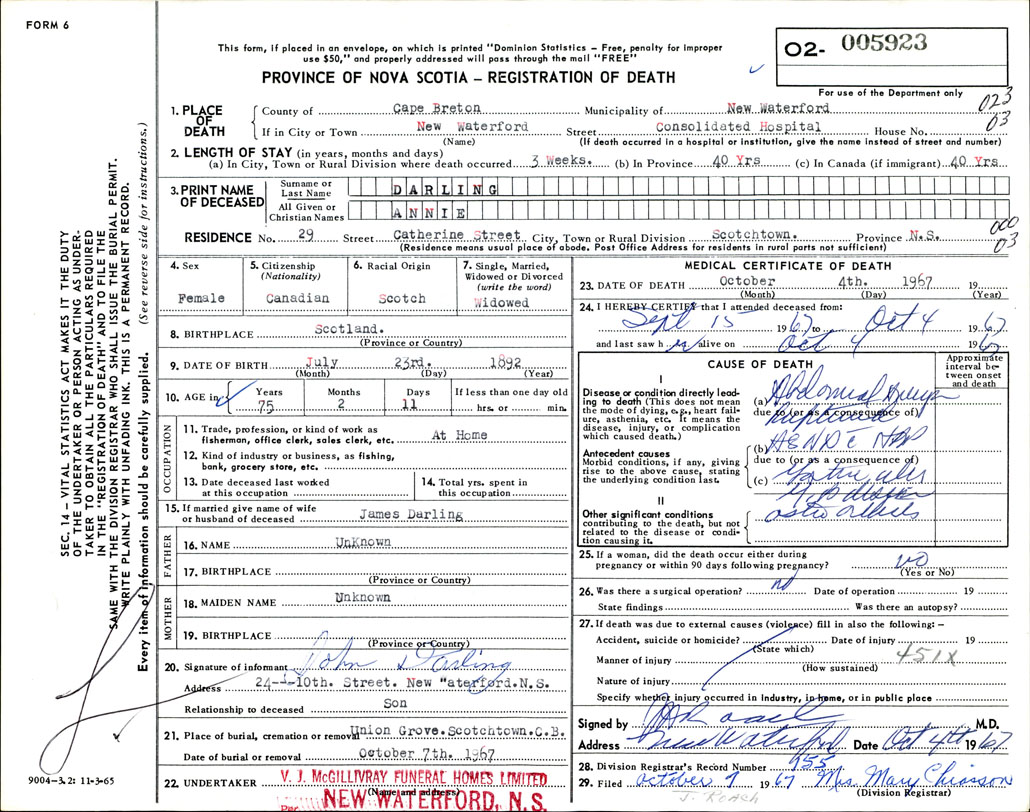 FORM 6
This form, if placed in an envelope, on which is printed "Dominion Statistics – Free, penalty for improper
use $50," and properly addressed will pass through the mail "FREE"
O2- 005923
PROVINCE OF NOVA SCOTIA – REGISTRATION OF DEATH
For use of the Department only
023
03
1. PLACE OF DEATH
County of Cape Breton Municipality of New Waterford
If in City or Town New Waterford Street Consolidated Hospital House No.
(Name) (If death occurred in a hospital or institution, give the name instead of street and number)
2. LENGTH OF STAY (in years, months and days)
(a) In City, Town or Rural Division where death occurred 3 Weeks. (b) In Province 40 Yrs (c) In Canada (if immigrant) 40 Yrs
3. PRINT NAME OF DECEASED
Surname or Last Name DARLING
All Given or Christian Names ANNIE
000
03
RESIDENCE No. 29 Street Catherine Street City, Town or Rural Division Scotchtown. Province N.S.
(Residence means usual place of abode. Post Office Address for residents in rural parts not sufficient)
4. Sex
Female
5. Citizenship
(Nationality)
Canadian
6. Racial Origin
Scotch
7. Single, Married,
Widowed or Divorced
(write the word)
Widowed
8. BIRTHPLACE Scotland.
(Province or Country)
9. DATE OF BIRTH July 23rd. 1892
(Month) (Day) (Year)
10. AGE in
Years Months Days If less than one day old
75 2 11 hrs. or min.
OCCUPATION
11. Trade, profession, or kind of work as
fisherman, office clerk, sales clerk, etc. At Home
12. Kind of industry or business, as fishing,
bank, grocery store, etc.
13. Date deceased last worked
at this occupation
14. Total yrs. spent in
this occupation
15. If married give name of wife
or husband of deceased James Darling
FATHER
16. NAME UnKnown
17. BIRTHPLACE
(Province or Country)
MOTHER
18. MAIDEN NAME Unknown
19. BIRTHPLACE
(Province or Country)
20. Signature of informant John Darling
Address 24--10th. Street. New "aterford.N.S.
Relationship to deceased Son
21. Place of burial, cremation or removal Union Grove.Scotchtown.C.B.
Date of burial or removal October 7th. 1967
22. UNDERTAKER V. J. McGILLIVRAY FUNERAL HOMES LIMITED
(Name and address)
Per NEW WATERFORD, N. S.
MEDICAL CERTIFICATE OF DEATH
23. DATE OF DEATH October 4th. 1967 19
(Month) (Day) (Year)
24. I HEREBY CERTIFY that I attended deceased from:
Sept 15 1967 to Oct 4 1967
and last saw h er alive on Oct 4 1967
CAUSE OF DEATH
Approximate interval between onset and death
I
Disease or condition directly leading to death (This does not mean
the mode of dying, e.g., heart failure, asthenia, etc. It means the
disease, injury, or complication
which caused death.)
(a) Abdominal
due to (or as a consequence of)
Ruptured
Antecedent causes
Morbid conditions, if any, giving
rise to the above cause, stating
the underlying condition last.
(b) ASHD
due to (or as a consequence of)
(c)
II
Other significant conditions
contributing to the death, but not
related to the disease or condition causing it.
25. If a woman, did the death occur either during
pregnancy or within 90 days following pregnancy? no
(Yes or No)
26. Was there a surgical operation? no Date of operation 19
State findings Was there an autopsy?
27. If death was due to external causes (violence) fill in also the following: –
Accident, suicide or homicide? Date of injury 19
(State which)
451X
Manner of injury
(How sustained)
Nature of injury
Specify whether injury occurred in industry, in home, or in public place
Signed by Roach M.D.
Address New Waterford Date Oct 4th 1967
28. Division Registrar's Record Number 955
29. Filed October 9 1967 Mrs. Mary Chiasson
(Division Registrar)
J. ROACH
SEC. 14 – VITAL STATISTICS ACT MAKES IT THE DUTY
OF THE UNDERTAKER OR PERSON ACTING AS UNDER-
TAKER TO OBTAIN ALL THE PARTICULARS REQUIRED
IN THE "REGISTRATION OF DEATH" AND TO FILE THE
SAME WITH THE DIVISION REGISTRAR WHO SHALL ISSUE THE BURIAL PERMIT.
WRITE PLAINLY WITH UNFADING INK. THIS IS A PERMANENT RECORD.
Every item of information should be carefully supplied. (See reverse side for instructions.)
9004-3.2: 11-3-65